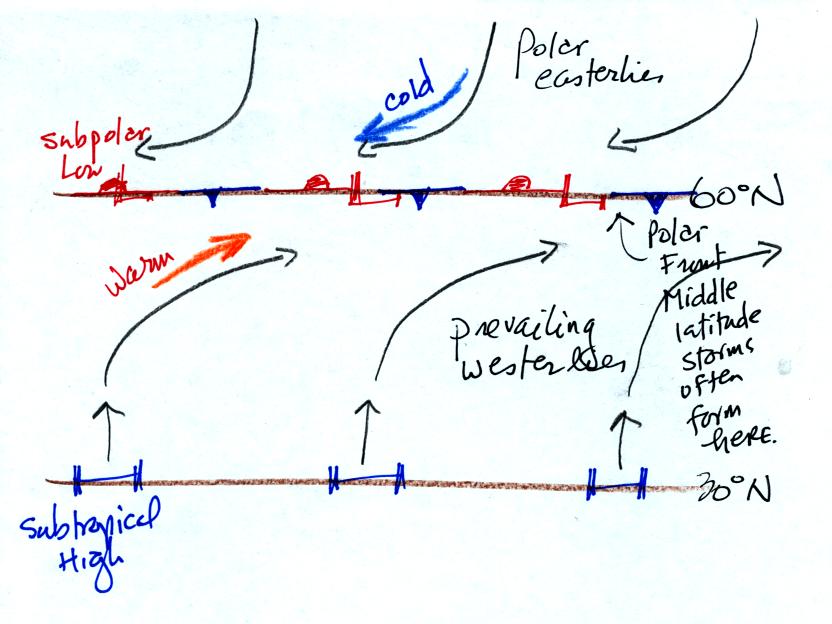 Polar
easterlies
cold
subpolar
Low
60°N
Polar
Front
warm
Middle
latitude
storms
often
form
HERE.
prevailing
westerlies
30°N
Subtropical
High